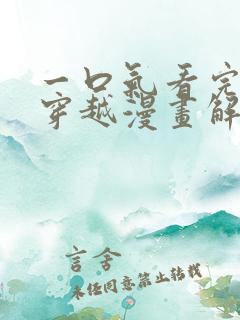 一口氣看完
穿越漫畫解
言舍
未经同意禁止转载